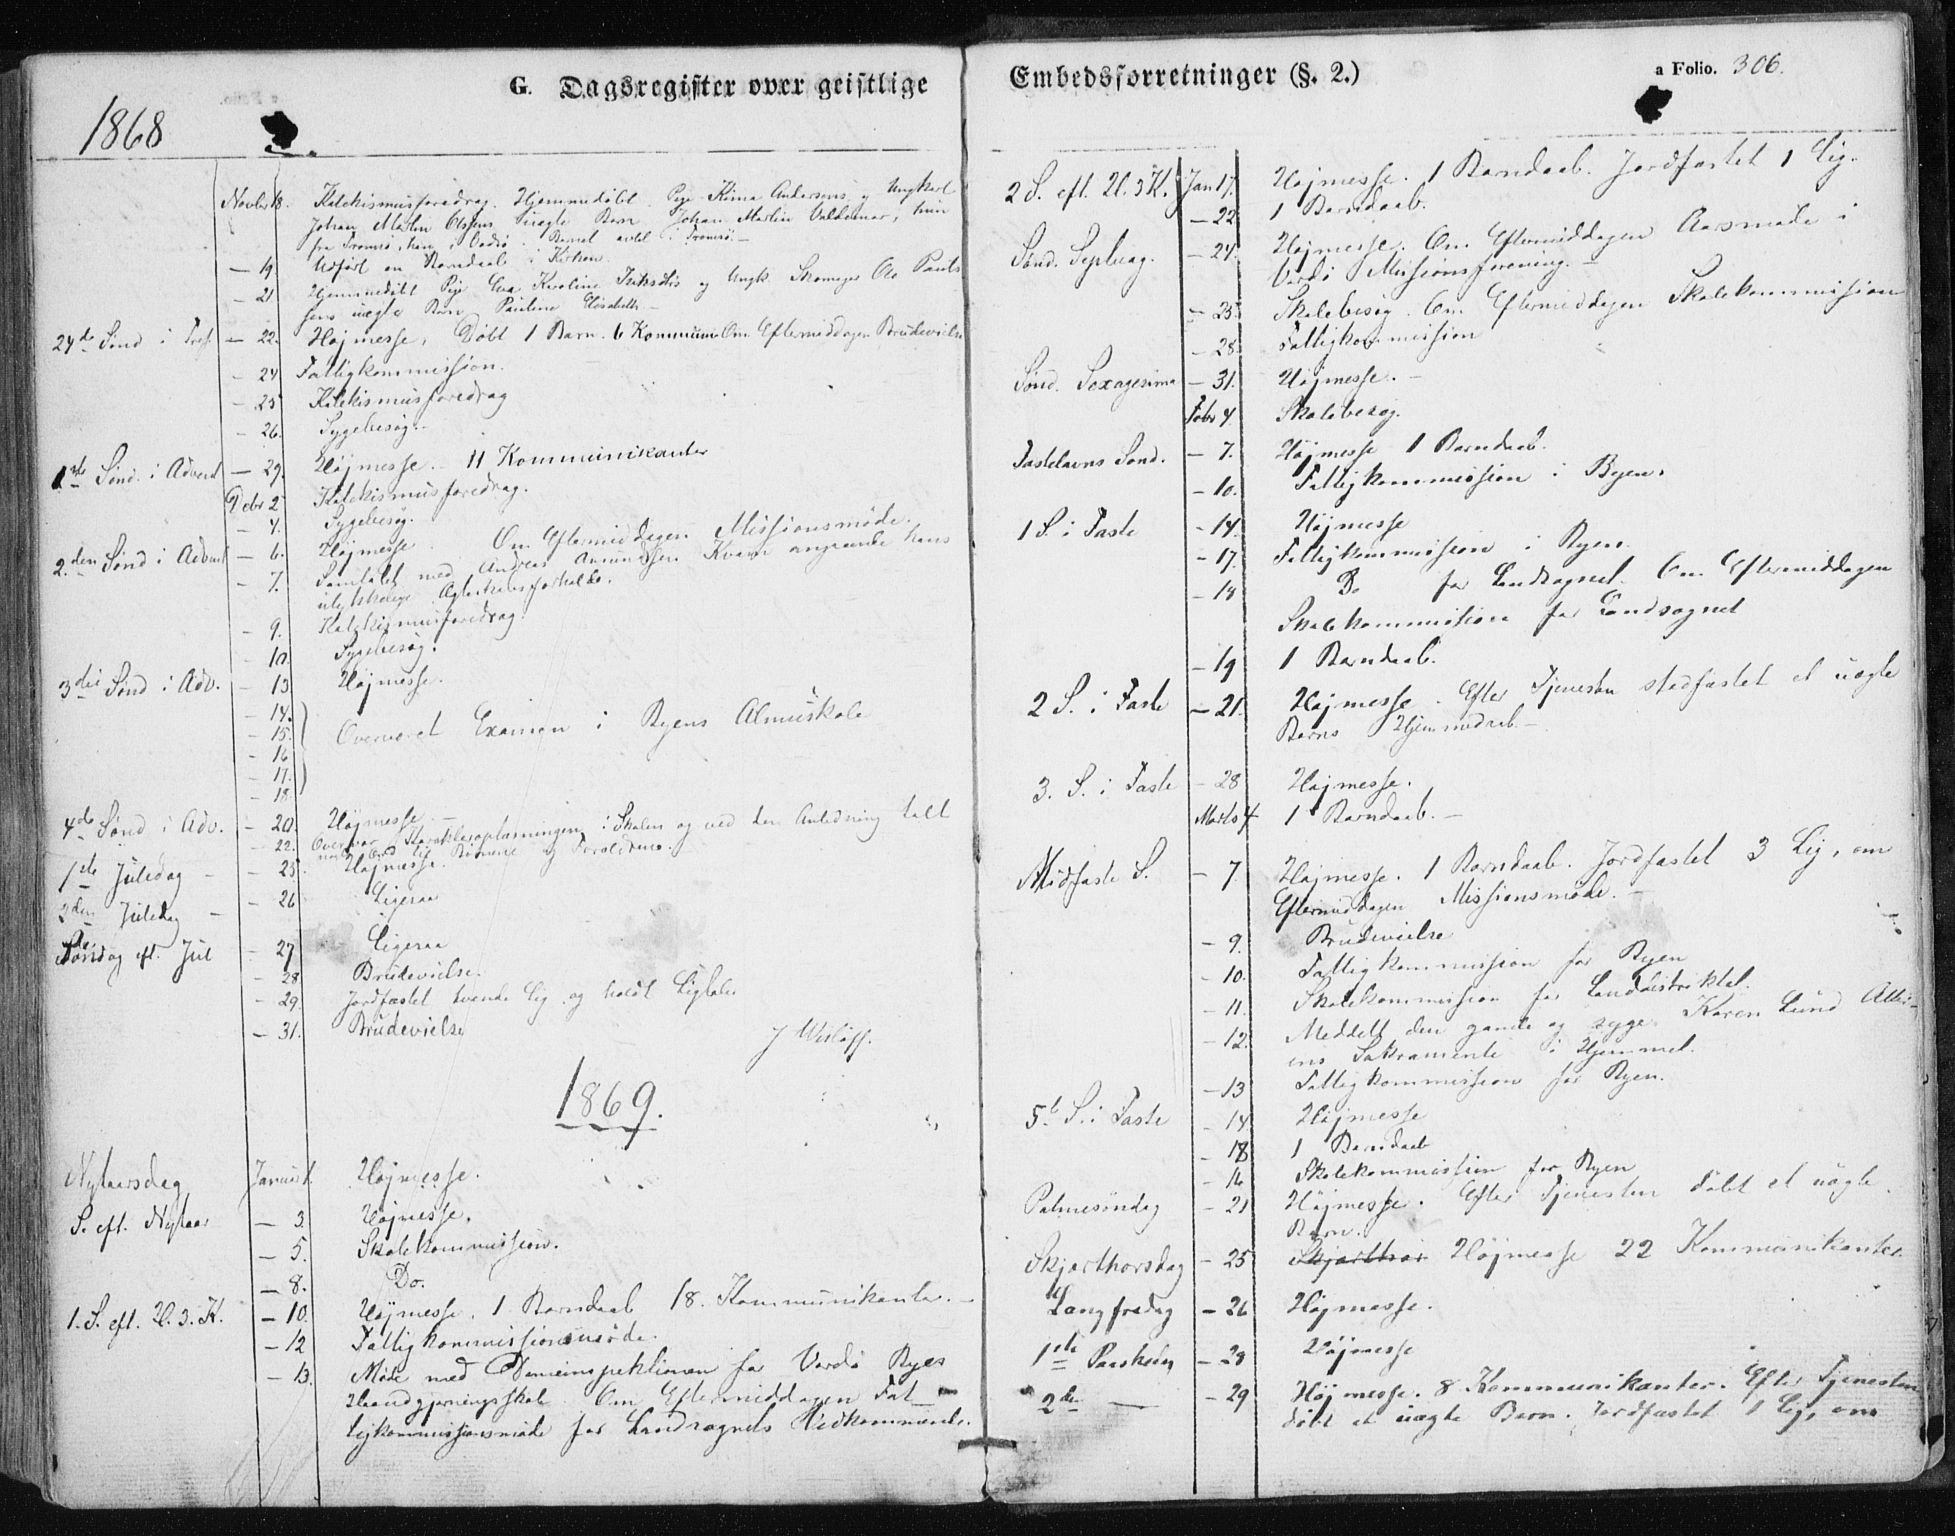 G. Dagsregister over geistlige
1868
Novbr 18. Katekismusforedrag. Hjemmedøbt Pige Andersens og Ungkarl
Johan Martin Olsens uægte Barn Johan Martin Valdemar, hun
fra Tromsø, han i Vadsø. Barnet avlet i Tromsø.
— 19 Udført en Barndaab i Kirken
— 21 Hjemmedøbt Pige Eva Karoline og Ungk. Skomager
sens uægte Barn Pauline Elisabeth
24de Sønd i Tref. — 22. Højmesse, Døbt 1 Barn. 6 Kommuni Om Eftermiddagen Brudevielse
— 24 Fattigkommission.
— 25 Katekismusforedrag
— 26. Sygebesøg.
1ste Sønd. i Advent — 29. Højmesse. 11 Kommunikanter
Debr 2 Katekismusforedrag.
— 4. Sygebesøg.
2den Sønd i Advent — 6. Højmesse. Om Eftermiddagen Missionsmøde.
— 7. Samtalet med Andreas Amundsen Kvam angaaende hans
ulykkelige Ægteskabsforholde.
— 9. Katekismusforedrag.
— 10. Sygebesøg.
3die Sønd i Adv. — 13 Højmesse.
— 14.
— 15. Overværet Examen i Byens Almuskole
— 16
— 17.
— 18
4de Sønd i Adv. — 20. Højmesse —
— 22. Overvar i Skolen og ved den Anledning talt
nogle Ord til Børnene og Forældrene.
1ste Juledag — 25. Højmesse.
2den Juledag — 26 Ligesaa
Søndag eft. Jul — 27 Ligesaa
— 28 Brudevielse.
— 29. Jordfæstet tvende Lig og holdt Ligtale
— 31. Brudevielse
J Wisløff.
1869.
Nytaarsdag Januar 1. Højmesse.
S. eft. Nytaar — 3. Højmesse.
— 5. Skolekommission.
— 8. Do.
1. S. eft. H. 3. K. — 10. Højmesse. 1 Barndaab 18. Kommunikanter. —
— 12 Fattigkommissionsmøde.
— 13. Møde med for Vardø Byes
Haandgjerningsskole. Om Eftermiddagen Fat-
tigkommissionsmøde for Landsognets Vedkommende.
Embedsforretninger (§. 2.)
a Folio. 306.
2 S. eft. H. 3 K. Jan 17. Højmesse. 1 Barndaab. Jordfæstet 1 Lig.
— 22. 1 Barndaab.
Sønd. Septuag. — 24. Højmesse. Om Eftermiddagen Aarsmøde i
Vardø Missionsforening. —
— 25. Skolebesøg. Om Eftermiddagen Skolekommission
— 28. Fattigkommission
Sønd. Sexagesima — 31. Højmesse. —
Febr 4 Skolebesøg.
Fastelavns Sønd. — 7. Højmesse 1 Barndaab.
— 10. Fattigkommission i Byen.
1 S. i Faste — 14. Højmesse
— 17. Fattigkommission i Byen.
— 18 Do for Landsognet. Om Eftermiddagen
Skolekommission for Landsognet
— 19 1 Barndaab.
2 S. i Faste — 21. Højmesse. Efter Tjenesten stadfæstet et uægte
Barns Hjemmedaab —
3. S. i Faste — 28 Højmesse.
Marts 4 1 Barndaab. —
Midfaste S. — 7. Højmesse. 1 Barndaab. Jordfæstet 3 Lig, om
Eftermiddagen Missionsmøde. —
— 9. Brudevielse
— 10. Fattigkommission for Byen
— 11. Skolekommission for Landdistriktet.
— 12. Meddelt den gamle og syge Karen Lund Alter-
ens Sakramente i Hjemmet.
— 13 Fattigkommission for Byen.
5te S. i Faste — 14 Højmesse
— 18 1 Barndaab
— 16 Skolekommission for Byen
Palmesøndag — 21 Højmesse. Efter Tjenesten døbt et uægte
Barn.
Skjærthorsdag — 25 Skjærthor Højmesse 22 Kommunikanter.
Langfredag — 26 Højmesse.
1ste Paaskedag — 28 Højmesse
2den — — 29 Højmesse. 8 Kommunikanter. Efter Tjenesten
døbt et uægte Barn. Jordfæstet 1 Lig, om